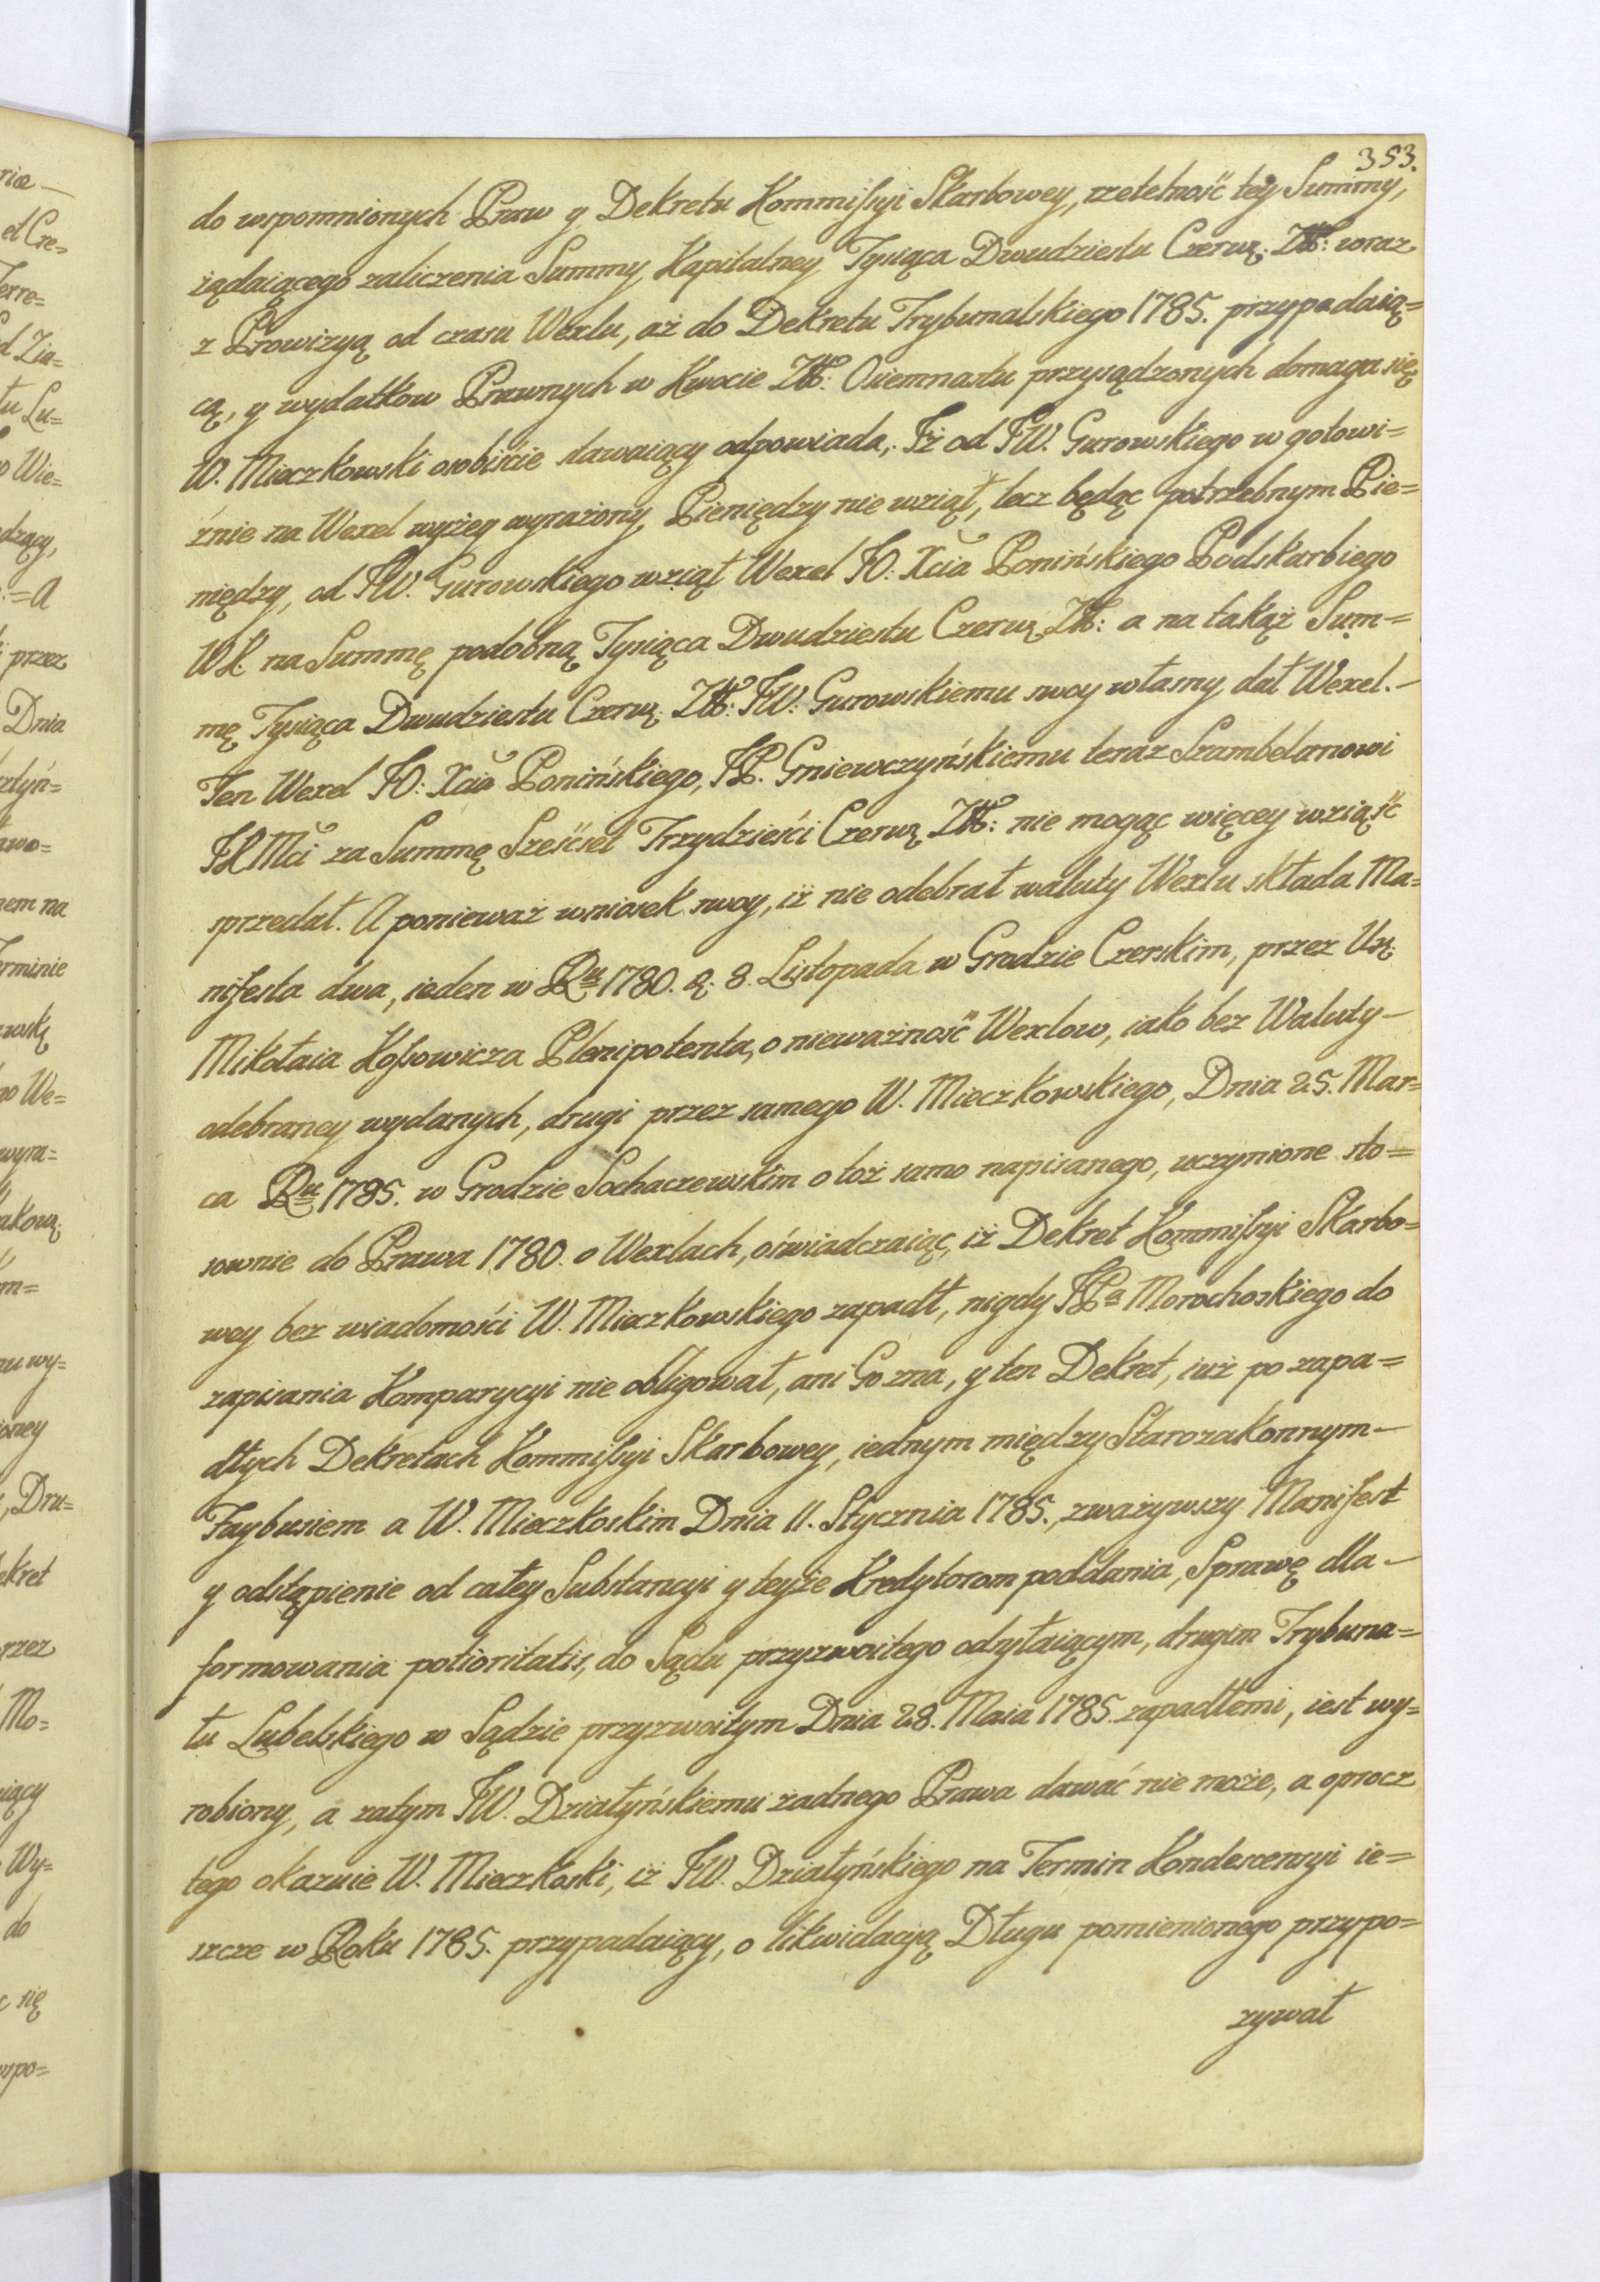 353.
do wspomnionych Praw y Dekretu Kommissyi Skarbowey, rzetelność tey Summy,
żądaiącego zaliczenia Summy Kapitalney Tysiąca Dwudziestu Czerw. Zł: wraz
z Prowizyą od czasu Wexlu, aż do Dekretu Trybunalskiego 1785. przypadaią=
cą, y wydatkow Prawnych w Kwocie Zł: Osiemnastu przysądzonych domaga się
W. Mieczkowski osobiście stawaiący odpowiada, Iż od JW. Gurowskiego w gotowi=
źnie na Wexel wyżey wyrażony, Pieniędzy nie wziął, lecz będąc potrzebnym Pie=
niędzy, od JW. Gurowskiego wziął Wexel JO: Xcia Ponińskiego Podskarbiego
WK. na Summę podobną Tysiąca Dwudziestu Czerw. Zł: a na takąż Sum=
mę Tysiąca Dwudziestu Czerw. Zł: JW: Gurowskiemu swoy własny dał Wexel.—
Ten Wexel JO: Xcia Ponińskiego, JP. Gniewczyńskiemu teraz Szambelanowi
JKMci za Summę Sześćset Trzydzieści Czerw. Zł: nie mogąc więcey wziąść
sprzedał. A ponieważ wniosek swoy, iż nie odebrał waluty Wexlu składa Ma=
nifesta dwa, ieden w Ru 1780. d. 8. Listopada w Grodzie Czerskim, przez Ur.
Mikołaia Kossowicza Plenipotenta, o nieważność Wexlow, iako bez Waluty—
odebraney wydanych, drugi przez samego W. Mieczkowskiego, Dnia 25. Mar=
ca Ru 1785. w Grodzie Sochaczewskim o toż samo napisanego, uczynione sto=
sownie do Prawa 1780. o Wexlach, oświadczaiąc, iż Dekret Kommissyi Skarbo=
wey bez wiadomości W. Mieczkowskiego zapadł, nigdy JPa Morochoskiego do
zapisania Komparycyi nie obligował, ani Go zna, y ten Dekret, iuż po zapa=
dłych Dekretach Kommissyi Skarbowey, iednym między Starozakonnym—
Faybusiem a W. Mieczkoskim Dnia 11. Stycznia 1785., zważywszy Manifest
y odstąpienie od całey Substancyi y teyże Kredytorom poddania, Sprawę dla—
formowania potioritatis, do Sądu przyzwoitego odsyłaiącym, drugim Trybuna=
łu Lubelskiego w Sądzie przyzwoitym Dnia 28. Maia 1785. zapadłemi, iest wy=
robiony, a zatym JW. Działyńskiemu żadnego Prawa dawać nie może, a oprocz
tego okazuie W. Mieczkoski, iż JW. Działyńskiego na Termin Kondescensyi ie=
szcze w Roku 1785. przypadaiący, o likwidacyą Długu pomienionego przypo=
zywał